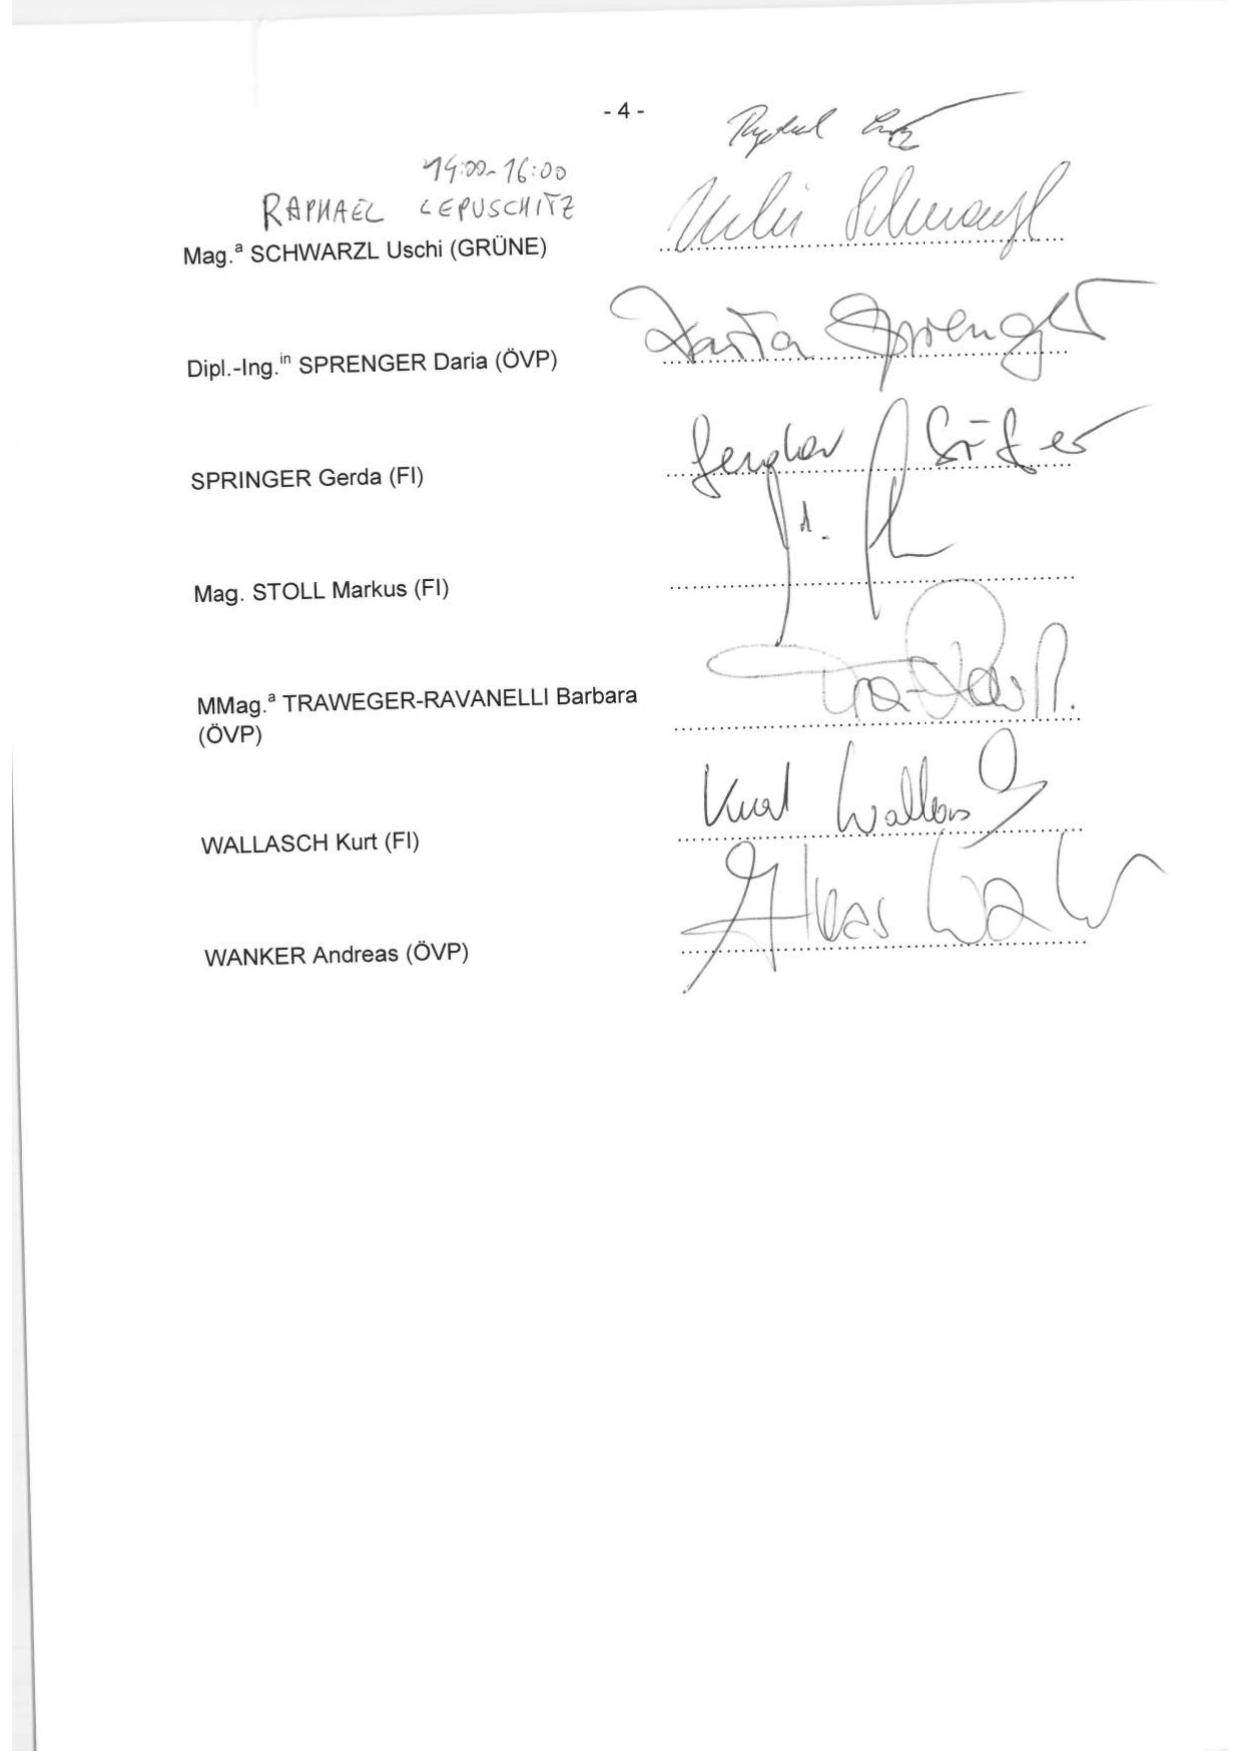 - 4 -
14:00-16:00
RAPHAEL LEPUSCHITZ
Mag.ª SCHWARZL Uschi (GRÜNE)
Schwarzl
Dipl.-Ing.ⁱⁿ SPRENGER Daria (ÖVP)
Daria Sprenger
SPRINGER Gerda (FI)
Mag. STOLL Markus (FI)
MMag.ª TRAWEGER-RAVANELLI Barbara
(ÖVP)
WALLASCH Kurt (FI)
Kurt Wallasch
WANKER Andreas (ÖVP)